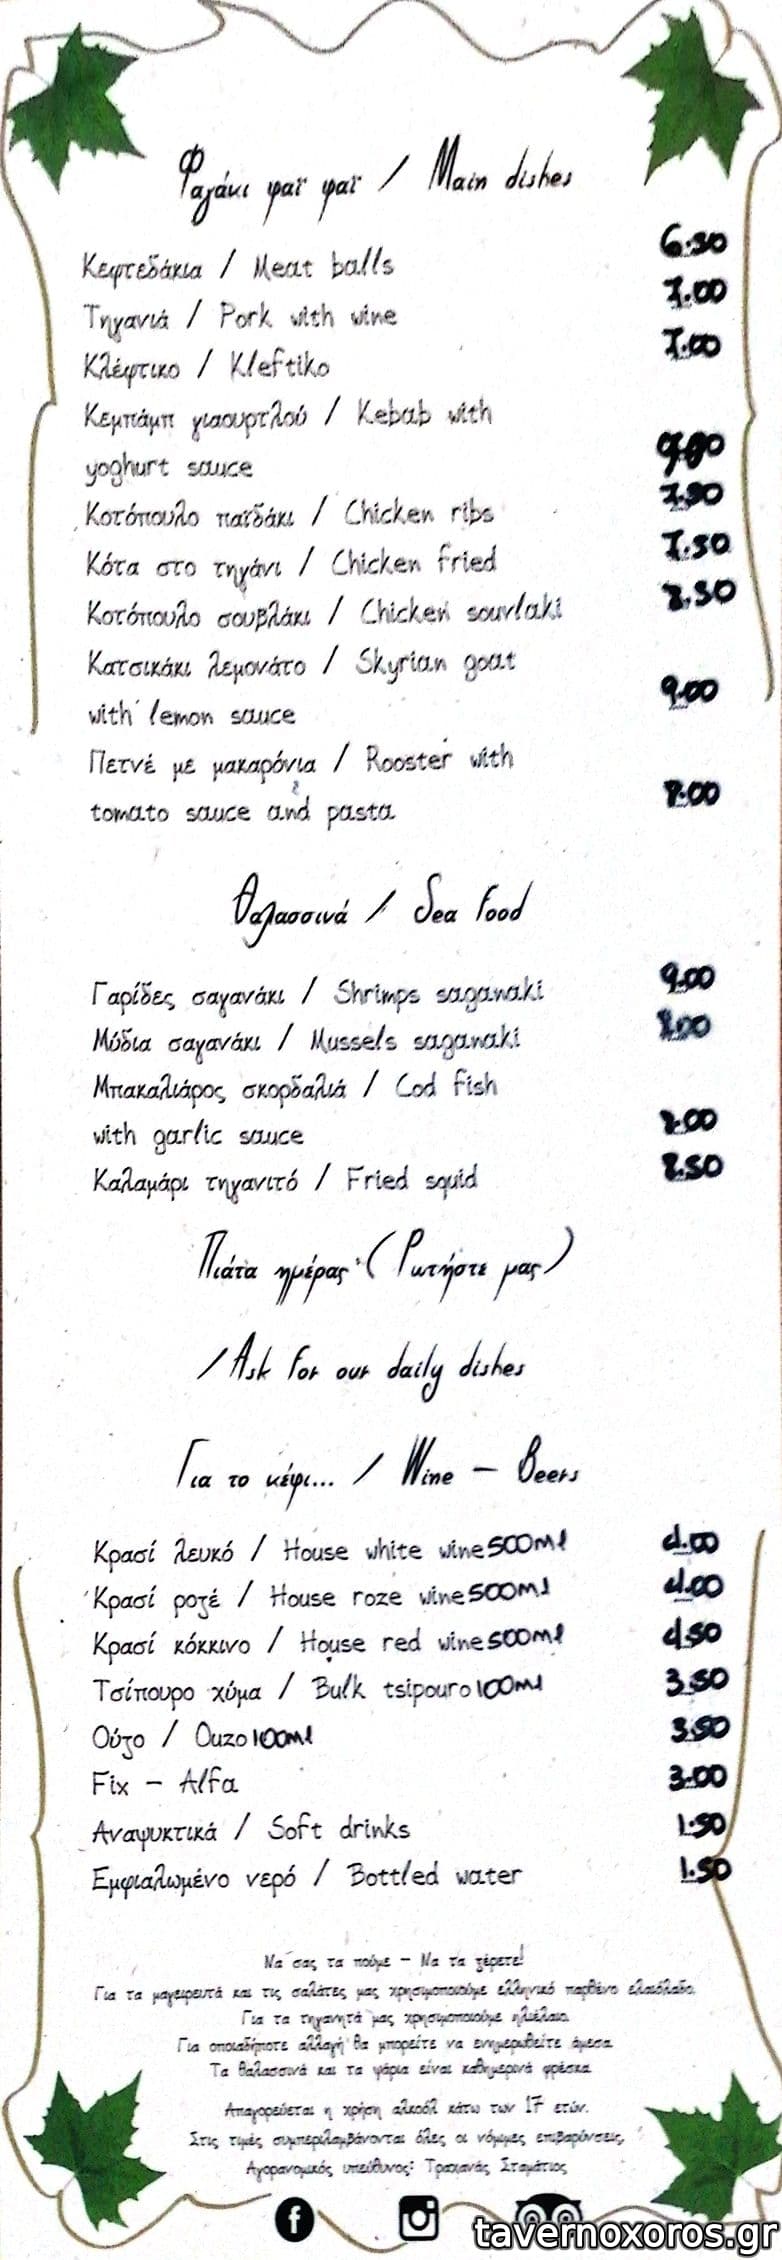 Φαγάκι φαϊ φαϊ / Main dishes
Κεφτεδάκια / Meat balls 6.50
Τηγανιά / Pork with wine 7.00
Κλέφτικο / Kleftiko 7.00
Κεμπάμπ γιαουρτλού / Kebab with
yoghurt sauce
Κοτόπουλο παϊδάκι / Chicken ribs 7.50
Κότα στο τηγάνι / Chicken fried 7.50
Κοτόπουλο σουβλάκι / Chicken souvlaki
Κατσικάκι λεμονάτο / Skyrian goat
with lemon sauce 9.00
Πετνέ με μακαρόνια / Rooster with
tomato sauce and pasta
Θαλασσινά / Sea food
Γαρίδες σαγανάκι / Shrimps saganaki 9.00
Μύδια σαγανάκι / Mussels saganaki
Μπακαλιάρος σκορδαλιά / Cod fish
with garlic sauce
Καλαμάρι τηγανιτό / Fried squid
Πιάτα ημέρας (Ρωτήστε μας)
/ Ask for our daily dishes
Για το κέφι... / Wine - Beers
Κρασί λευκό / House white wine 500ml 4.00
Κρασί ροζέ / House roze wine 500ml 4.00
Κρασί κόκκινο / House red wine 500ml 4.50
Τσίπουρο χύμα / Bulk tsipouro 100ml 3.50
Ούζο / Ouzo 100ml 3.50
Fix - Alfa 3.00
Αναψυκτικά / Soft drinks 1.50
Εμφιαλωμένο νερό / Bottled water 1.50
Να σας τα πούμε - Να τα ξέρετε!
Για τα μαγειρευτά και τις σαλάτες μας χρησιμοποιούμε ελληνικό παρθένο ελαιόλαδο.
Για τα τηγανητά μας χρησιμοποιούμε ηλιέλαιο.
Για οποιαδήποτε αλλαγή θα μπορείτε να ενημερωθείτε άμεσα.
Τα θαλασσινά και τα ψάρια είναι καθημερινά φρέσκα.
Απαγορεύεται η χρήση αλκοόλ κάτω των 17 ετών.
Στις τιμές συμπεριλαμβάνονται όλες οι νόμιμες επιβαρύνσεις.
Αγορανομικός υπεύθυνος: Τραχανάς Σταμάτιος
tavernoxoros.gr